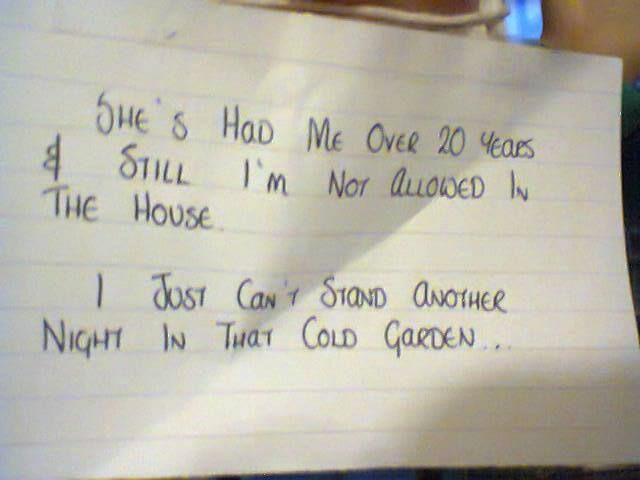 She's Had Me Over 20 Years
& Still I'm Not Allowed In
The House.
I Just Can't Stand Another
Night In That Cold Garden...